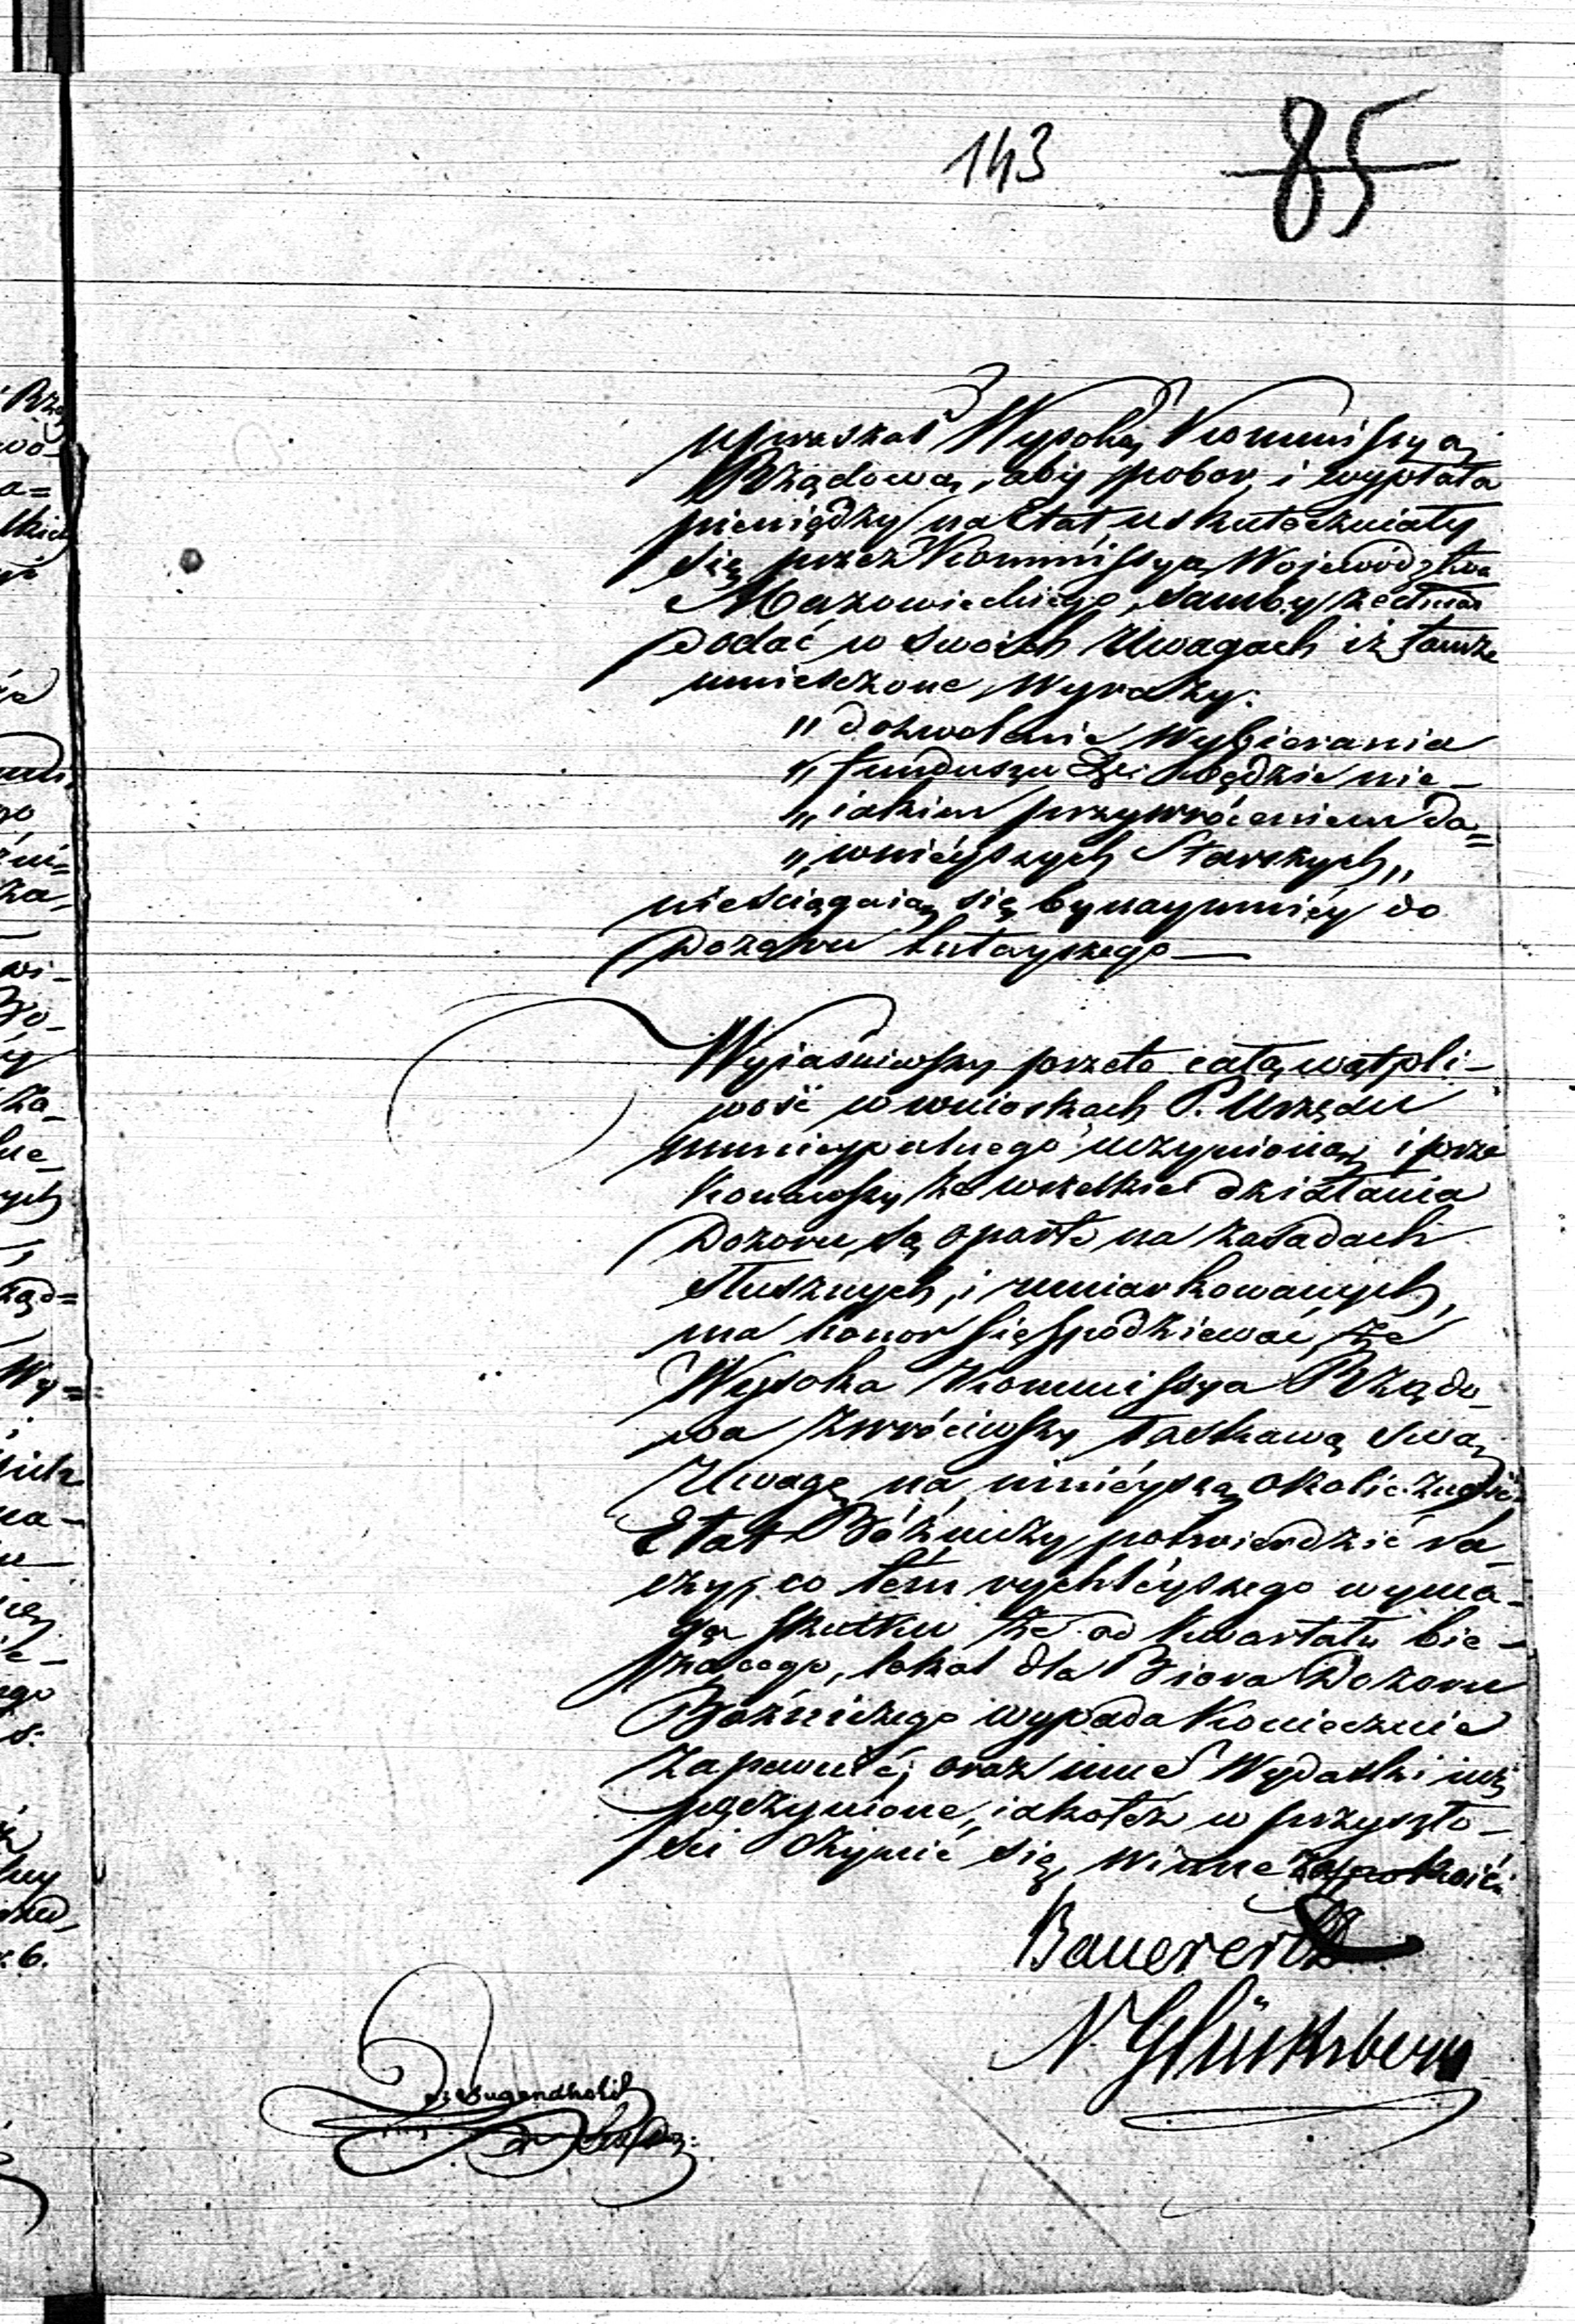 143 85
upraszać Wysoką Kommissyą
Rządową, aby pobor i wypłata
pieniędzy na Etat uskuteczniały
się przez Kommissyą Województwa
Mazowieckiego,
dodać w swoich Uwagach iż tamże
umieszczone Wyrazy:
„dozwolenie Wybierania
„funduszu &c: będzie nie-
„iakiem przywróceniem da=
„wnieyszych Starszych„
nieściągaią się bynaymniey do
Dozoru tutayszego —
Wyjaśniwszy przeto całą wątpli-
wość w wnioskach P. Urzędu
municypalnego uczynioną, i prze
konawszy że wszelkie działania
Dozoru, są oparte na zasadach
słusznych, i umiarkowanych,
ma honor się spodziewać, że
Wysoka Kommissya Rządo-
wa zwróciwszy łaskawą swą
Uwagę na ninieyszą okoliczność
Etat Bóżniczy potwierdzić ra-
czy, co tém rychleyszego wyma-
ga skutku że od kwartału bie-
żącego, lokal dla Biora Dozoru
Bóżniczego wypada koniecznie
zapewnić, oraz inne Wydatki iuż
uczynione, iakoteż w przyszło-
ści czynić się winne zaspokoić.
Bauerertz
N. Glücksberg